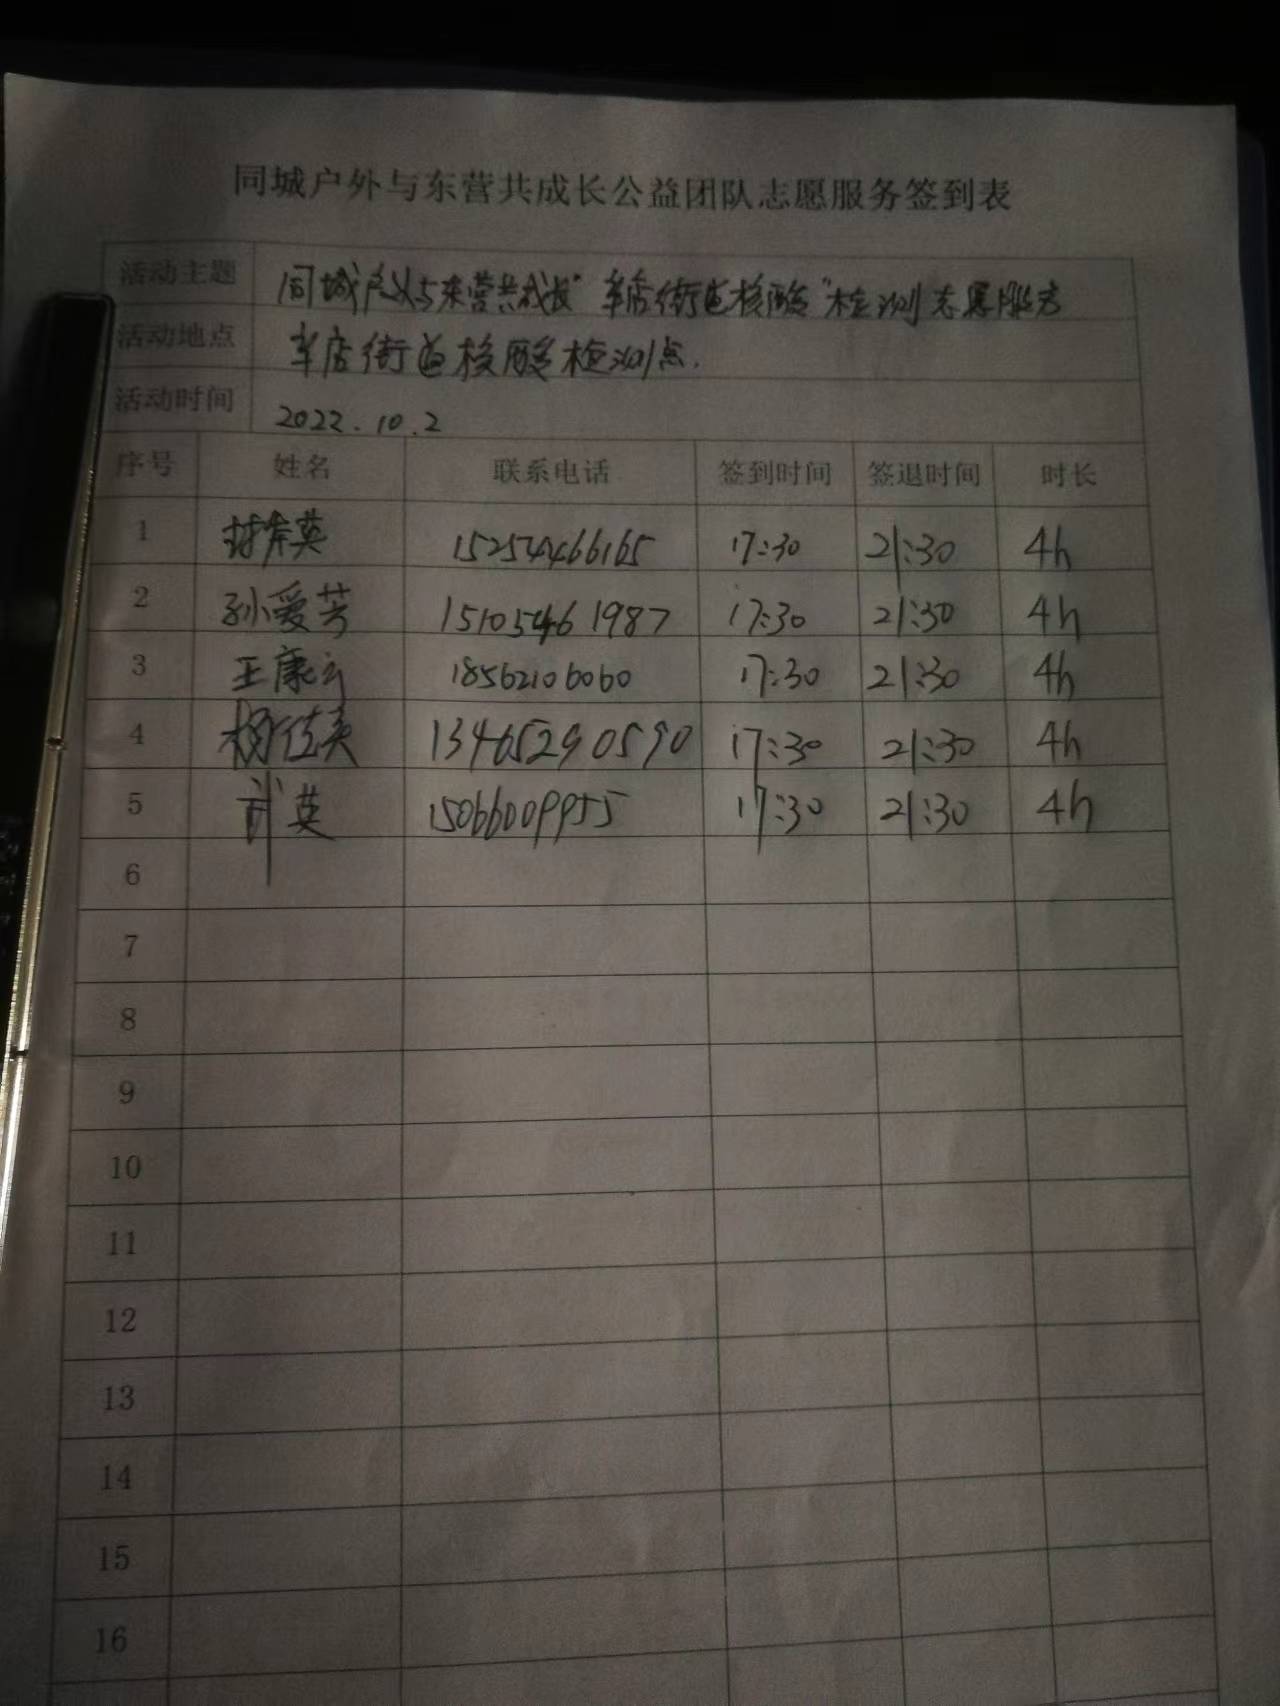 同城户外与东营共成长公益团队志愿服务签到表
活动主题 同城户外与东营共成长"辛店街道核酸"检测志愿服务
活动地点 辛店街道核酸检测点.
活动时间 2022.10.2
序号 姓名 联系电话 签到时间 签退时间 时长
1 英 15254466165 17:30 21:30 4h
2 孙爱芳 15105461987 17:30 21:30 4h
3 王康 18562106060 17:30 21:30 4h
4 杨佳英 13465290590 17:30 21:30 4h
5 武英 15066009955 17:30 21:30 4h
6
7
8
9
10
11
12
13
14
15
16